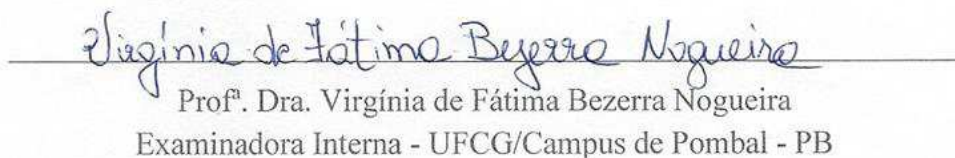 Virgínia de Fátima Bezerra Nogueira
Profª. Dra. Virgínia de Fátima Bezerra Nogueira
Examinadora Interna - UFCG/Campus de Pombal - PB